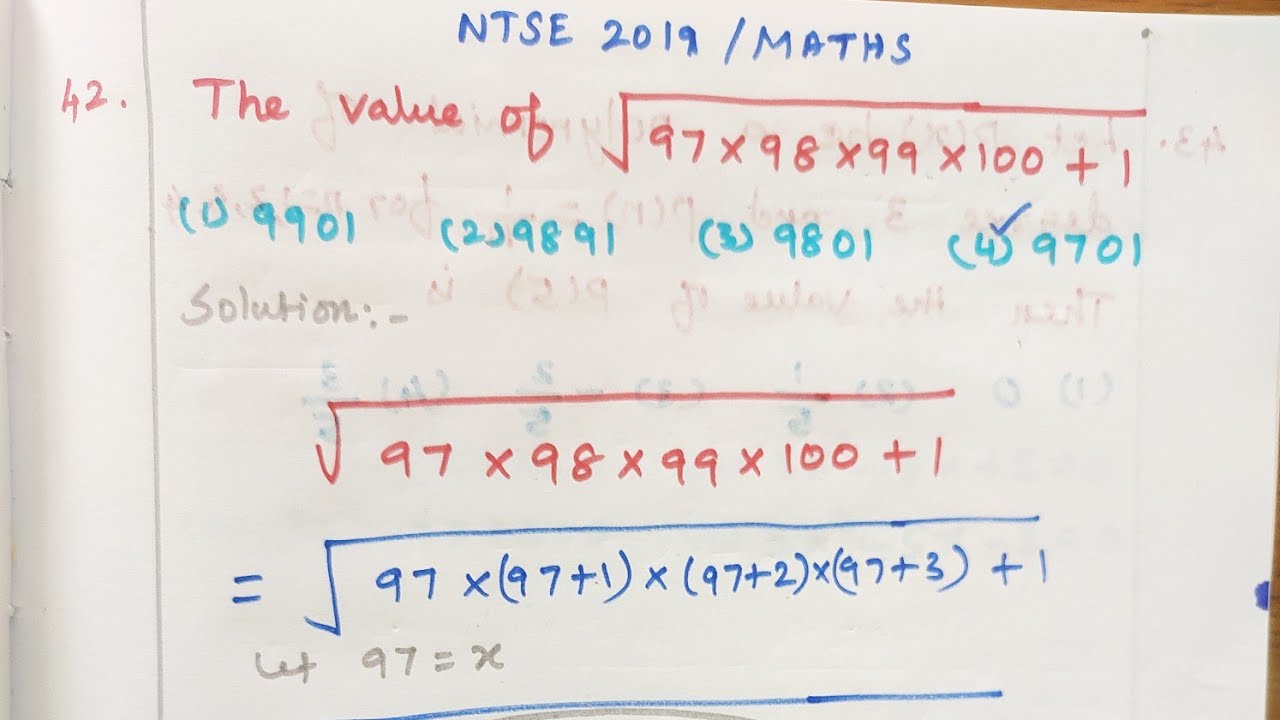 NTSE 2019 / MATHS
42. The value of √97×98×99×100+1
(1) 9901 (2) 9891 (3) 9801 (4) 9701
Solution:-
√97×98×99×100+1
= √97×(97+1)×(97+2)×(97+3)+1
Let 97=x